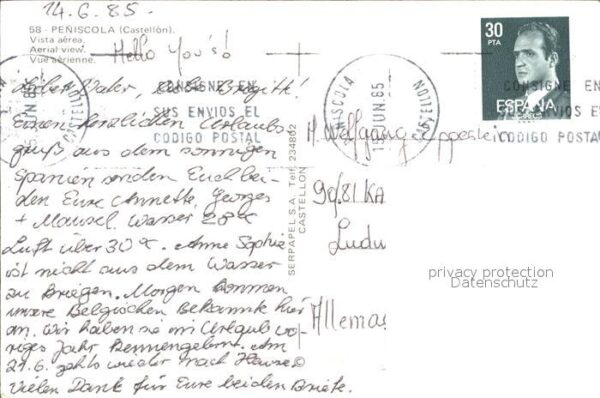 14.6.85.
58 - PEÑISCOLA (Castellón)
Vista aérea.
Aerial view.
Vue aérienne.
Hello You's!
Lieber Vater, liebe Brigitt!
Einen herzlichen Urlaubs
gruß aus dem sonnigen
Spanien senden Euch bei-
den Eure Annette, Georges
+ Mausel. Wasser 28°C
Luft über 30°C. Anne Sophie
ist nicht aus dem Wasser
zu kriegen. Morgen kommen
unsere Belgischen Bekannte hier
an. Wir haben sie im Urlaub vo-
riges Jahr kennengelernt. Am
21.6. geht's wieder nach Hause
Vielen Dank für Eure beiden Briefe.
SERPAPEL S.A. Telf. 234812
CASTELLON
CONSIGNE EN
SUS ENVIOS EL
CODIGO POSTAL
PEÑISCOLA
JUN. 85
CASTELLON
30
PTA
ESPAÑA
CONSIGNE EN
ENVIOS EL
CODIGO POSTAL
H. Wolfgang
KA
Ludu
Allemag
privacy protection
Datenschutz